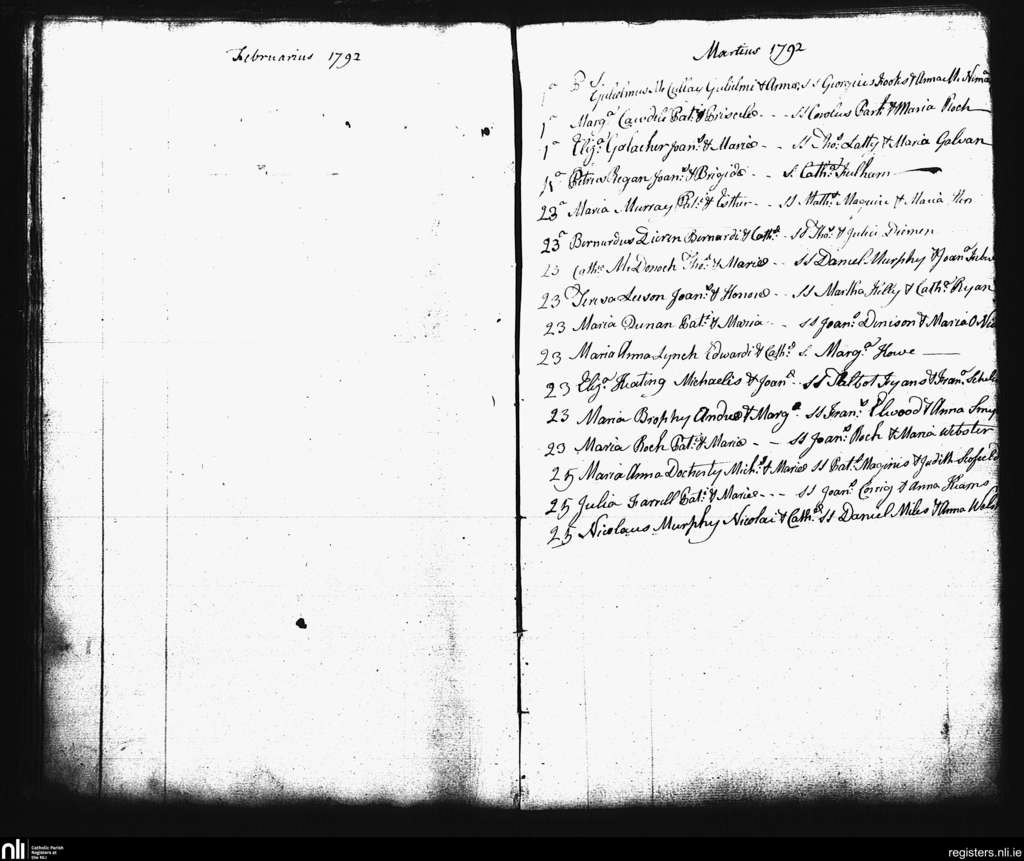 Februarius 1792
Martius 1792
1ª B S
Gulielmus Mc Cullay Gulielmi & Annæ SS Georgius Rooks & Anna Mc
1ª Margª Cawdle Patˢ & Priscilæ - - - SS Carolus Park & Maria Roch
1ª Elizª Golacher Joanˢ & Mariæ - - SS Thoˢ Latty & Maria Galvan
Petrus Regan Joanˢ & Brigidæ - - S. Cathª Fulham
23ª Maria Murray Patˢ & Esther - - SS Mathˢ Maguire & Maria
23ª Bernardus Dieren Bernardi & Cathª - SS Thoˢ & Julia Diemen
23 Cathª Mc Donoch Thoˢ & Mariæ - - SS Daniel Murphy & Joanª
23 Teresa Leeson Joanˢ & Honoræ - - SS Martha Kilty & Cathª Ryan
23 Maria Dunan Patˢ & Maria - - SS Joanˢ Denison & Maria
23 Maria Anna Lynch Edwardi & Cathª S. Margª Howe
23 Elizª Keating Michaelis & Joanª - SS Talbot Fyans & Franˢ
23 Maria Brophy Andreæ & Margª - SS Franˢ Elwood & Anna
23 Maria Roch Patˢ & Mariæ - - SS Joanˢ Roch & Maria Webster
25 Maria Anna Docherty Michˢ & Mariæ SS Patˢ Maginis & Judith
25 Julia Farrell Patˢ & Mariæ - - - SS Joanˢ Corrig & Anna Kiams
25 Nicolaus Murphy Nicolai & Cathª SS Daniel Miles & Anna
nli
Catholic Parish
Registers at
the NLI
registers.nli.ie